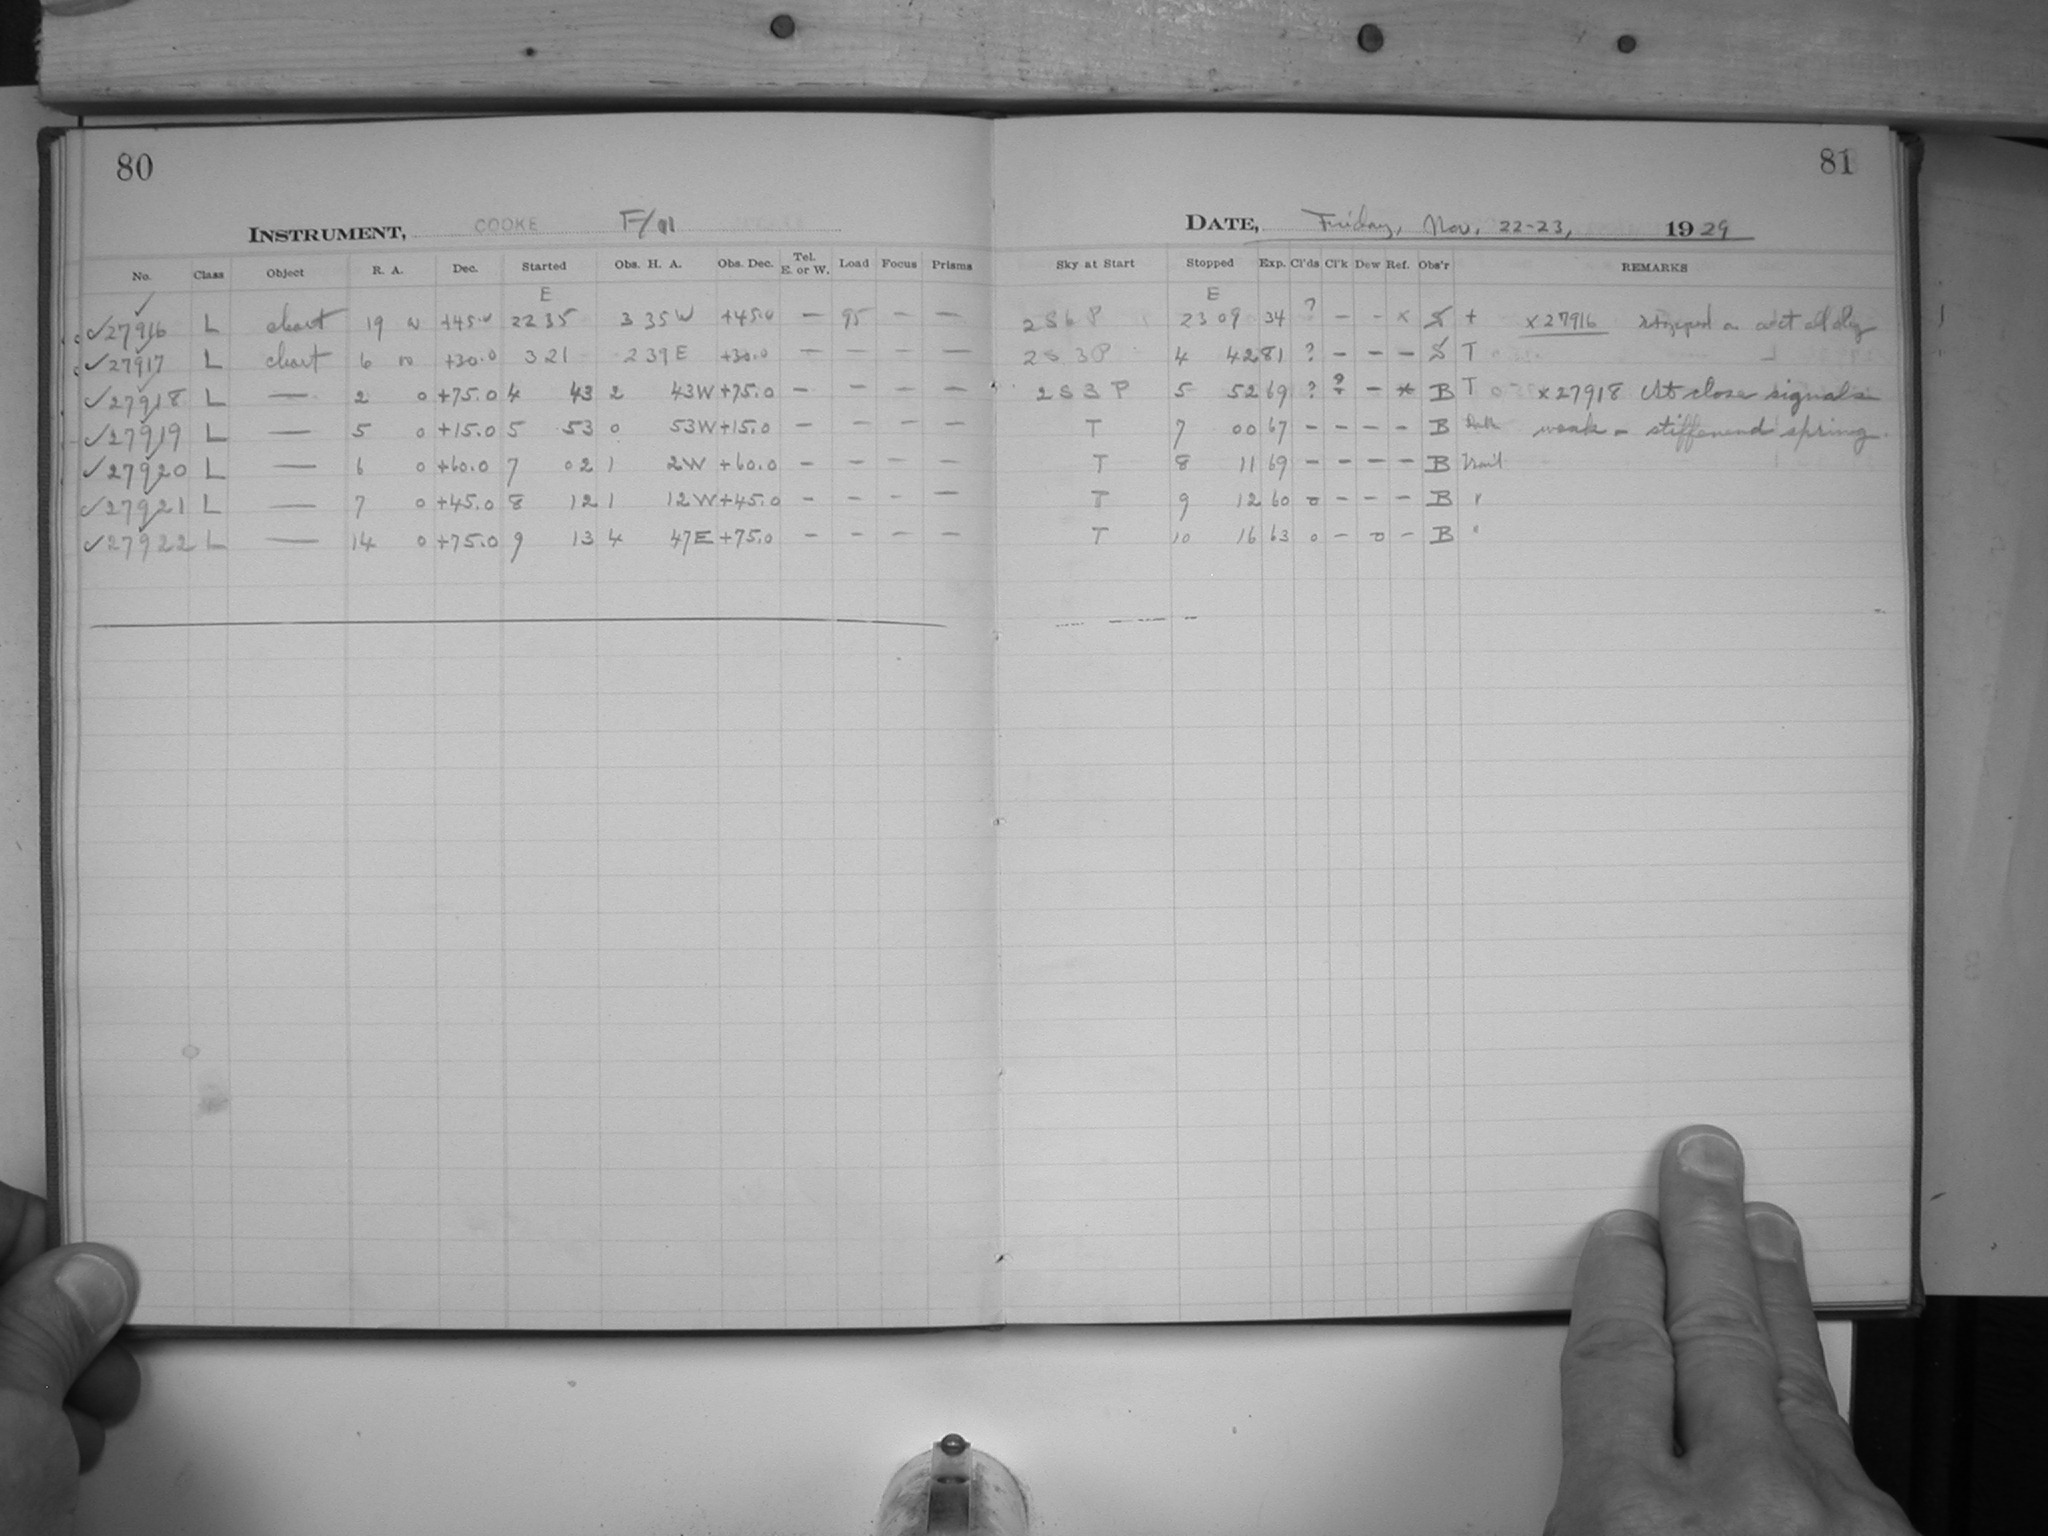 80
81
INSTRUMENT, COOKE F/
DATE, Friday, Nov. 22-23, 1929
No. Class Object R. A. Dec. Started Obs. H. A. Obs. Dec. Tel. E. or W. Load Focus Prisms Sky at Start Stopped Exp. Cl'ds Cl'k Dew Ref. Obs'r REMARKS
E E
✓27916 L chart 19 +45.0 22 35 3 35W +45.0 — 95 — — 2S6P 23 09 34 ? — - x S + x27916 stopped
✓27917 L chart 6 +30.0 3 21 2 39E +30.0 — — — — 2S3P 4 42 81 ? — — — S T
✓27918 L — 2 0 +75.0 4 43 2 43W +75.0 — — — — 2S3P 5 52 69 ? ? — * B T x27918 At close signals
✓27919 L — 5 0 +15.0 5 53 0 53W +15.0 — — — — T 7 00 67 — — — — B weak - stiffenend spring.
✓27920 L — 6 0 +60.0 7 02 1 2W +60.0 — — — — T 8 11 69 — — — — B trail
✓27921 L — 7 0 +45.0 8 12 1 12W +45.0 — — — — T 9 12 60 0 — — — B "
✓27922 L — 14 0 +75.0 9 13 4 47E +75.0 — — — — T 10 16 63 0 — 0 — B "